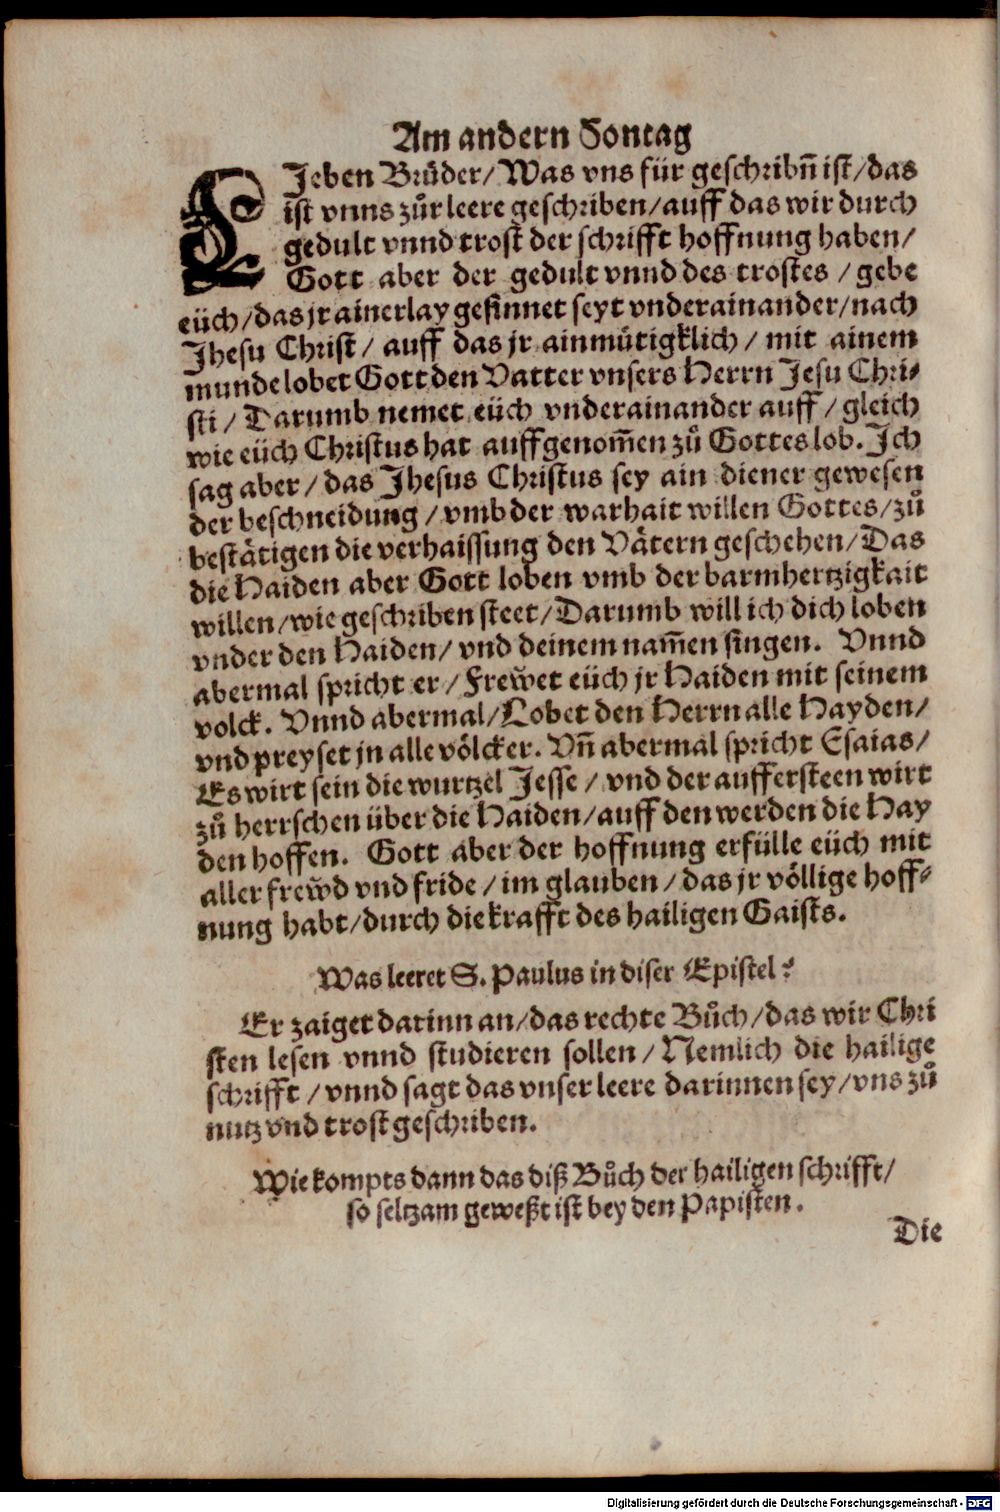 Am andern Sontag
LJeben Brůder/ Was vns für geschribñ ist/ das
ist vnns zůr leere geschriben/ auff das wir durch
gedult vnnd trost der schrifft hoffnung haben/
Gott aber der gedult vnnd des trostes / gebe
eüch/ das jr ainerlay gesinnet seyt vnderainander/ nach
Jhesu Christ/ auff das jr ainmůtigklich / mit ainem
munde lobet Gott den Vatter vnsers Herrn Jesu Chri⸗
sti / Darumb nemet eüch vnderainander auff / gleich
wie eüch Christus hat auffgenom̃en zů Gottes lob. Jch
sag aber / das Jhesus Christus sey ain diener gewesen
der beschneidung / vmb der warhait willen Gottes/ zů
bestätigen die verhaissung den Vätern geschehen/ Das
die Haiden aber Gott loben vmb der barmhertzigkait
willen/ wie geschriben steet/ Darumb will ich dich loben
vnder den Haiden/ vnd deinem nam̃en singen. Vnnd
abermal spricht er/ Frew̌et eüch jr Haiden mit seinem
volck. Vnnd abermal/ Lobet den Herrn alle Hayden/
vnd preyset jn alle völcker. Vñ abermal spricht Esaias/
Es wirt sein die wurtzel Jesse / vnd der auffersteen wirt
zů herrschen über die Haiden/ auff den werden die Hay
den hoffen. Gott aber der hoffnung erfülle eüch mit
aller frew̌d vnd fride / im glauben / das jr völlige hoff⸗
nung habt/ durch die krafft des hailigen Gaists.
Was leeret S. Paulus in diser Epistel?
Er zaiget darinn an/ das rechte Bůch/ das wir Chri
sten lesen vnnd studieren sollen / Nemlich die hailige
schrifft / vnnd sagt das vnser leere darinnen sey/ vns zů
nutz vnd trost geschriben.
Wie kompts dann das diß Bůch der hailigen schrifft/
so seltzam geweßt ist bey den Papisten.
Die
Digitalisierung gefördert durch die Deutsche Forschungsgemeinschaft - DFG